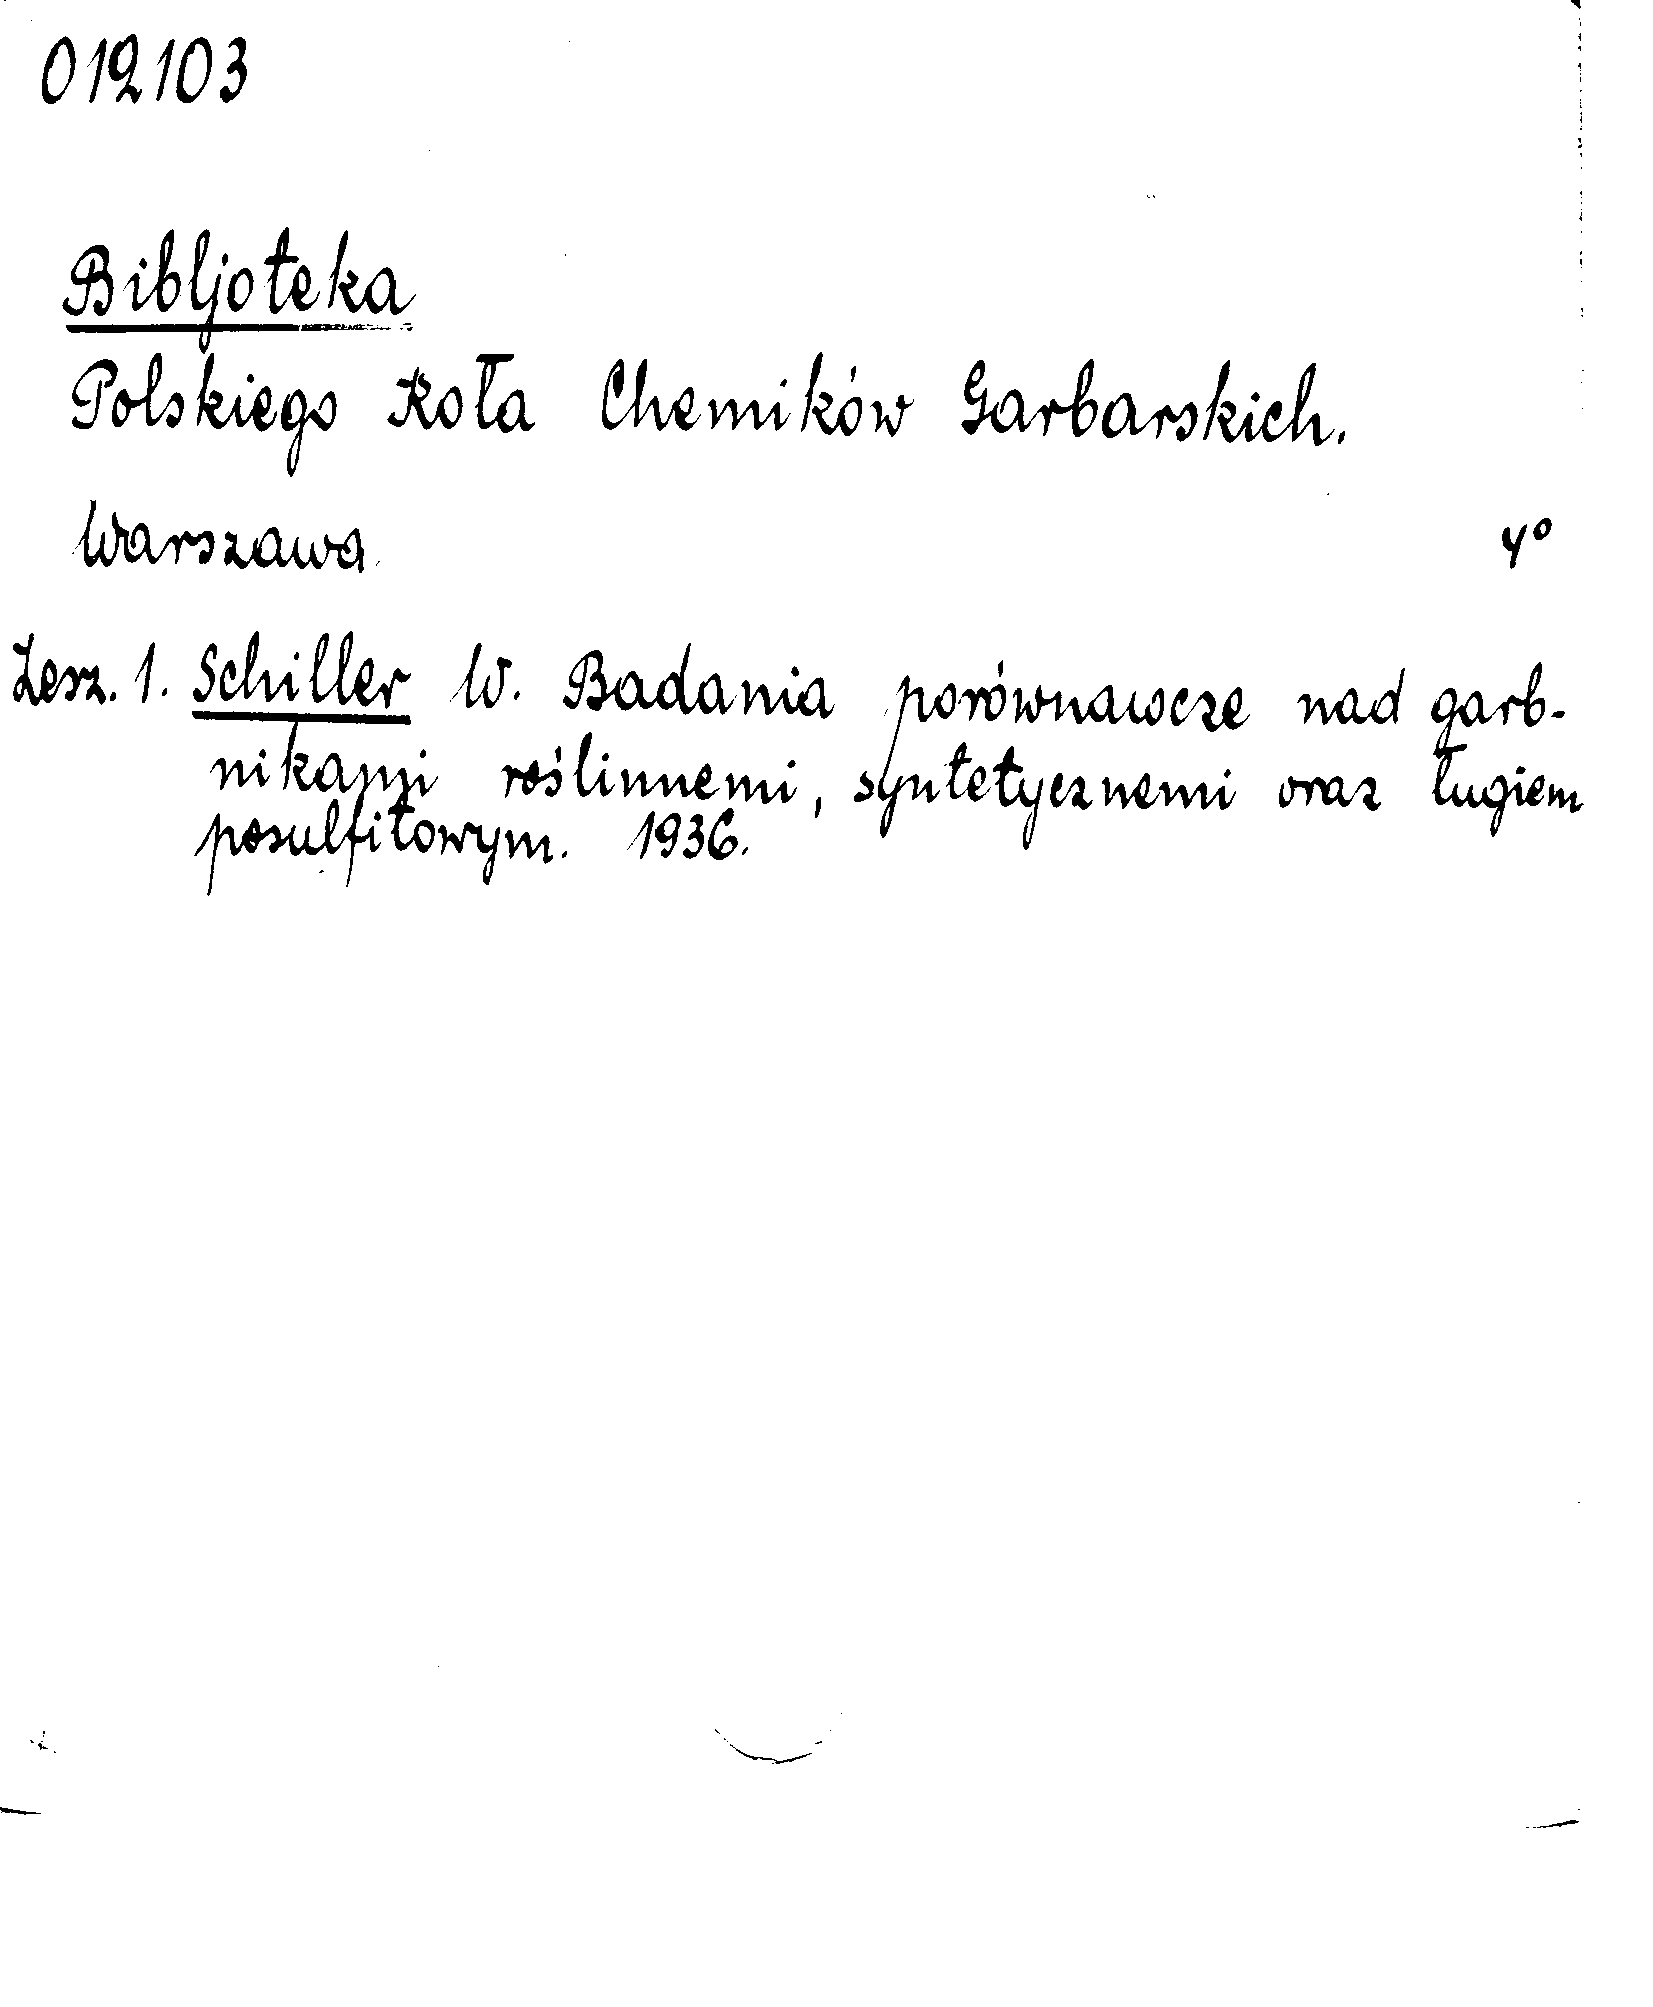 012103
Bibljoteka
Polskiego Koła Chemików Garbarskich.
Warszawa. 4°
Zesz. 1. Schiller W. Badania porównawcze nad garb-
nikami roślinnemi, syntetycznemi oraz ługiem
posulfitowym. 1936.